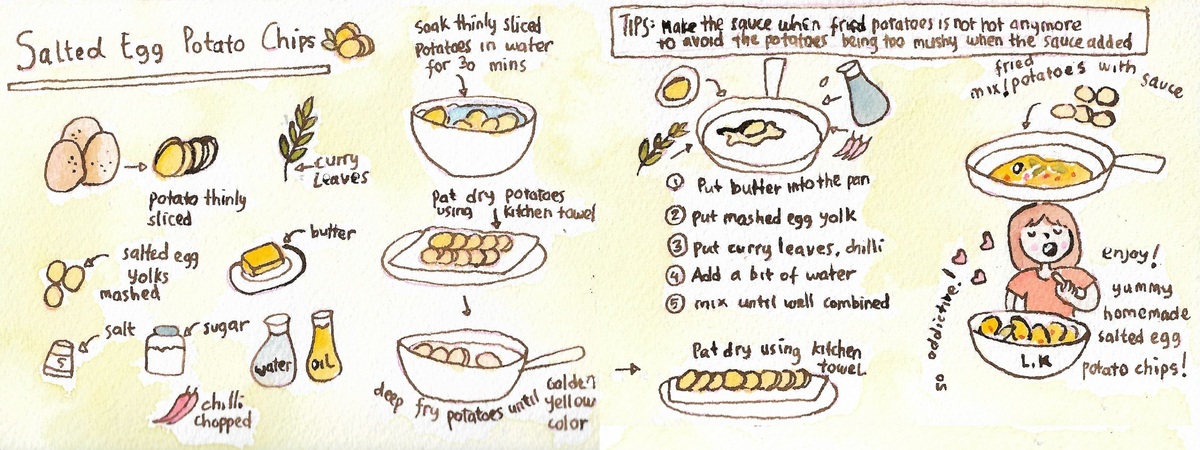 Salted Egg Potato Chips
potato thinly
sliced
curry
leaves
salted egg
yolks
mashed
butter
salt
S
sugar
water
OIL
chilli
chopped
Soak thinly sliced
Potatoes in water
for 30 mins
Pat dry potatoes
using kitchen towel
deep fry potatoes until
Golden
yellow
color
TIPS: Make the sauce when fried potatoes is not hot anymore
to avoid the potatoes being too mushy when the sauce added
① Put butter into the pan
② Put mashed egg yolk
③ Put curry leaves, chilli
④ Add a bit of water
⑤ mix until well combined
Pat dry using kitchen
towel
fried
mix potatoes with sauce
so addictive!
enjoy!
yummy
homemade
salted egg
potato chips!
L.K